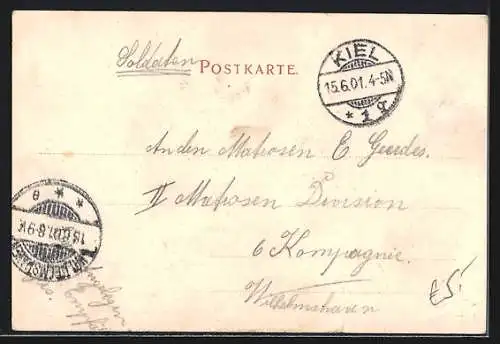 Soldaten
POSTKARTE.
KIEL
15.6.01. 4-5N
* 1 g
An den Matrosen E Gerdes.
II Matrosen Division
6 Kompagnie.
Wilhelmshaven
WILHELMSHAVEN
8-9V.
* * e
Empfä
£5.-